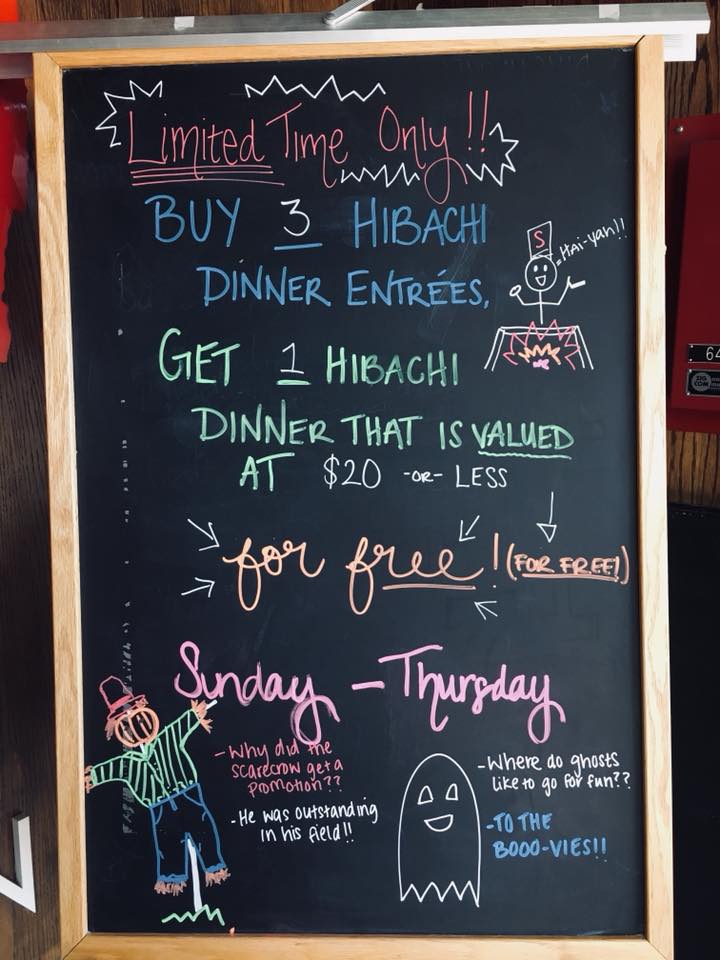 Limited Time Only!!
BUY 3 HIBACHI
DINNER ENTRÉES,
S
Hai-yah!!
GET 1 HIBACHI
DINNER THAT IS VALUED
AT $20 -OR- LESS
for free! (FOR FREE!)
Sunday - Thursday
-Why did the
scarecrow get a
promotion??
-He was outstanding
in his field!!
-Where do ghosts
like to go for fun??
-TO THE
BOOO-VIES!!
64